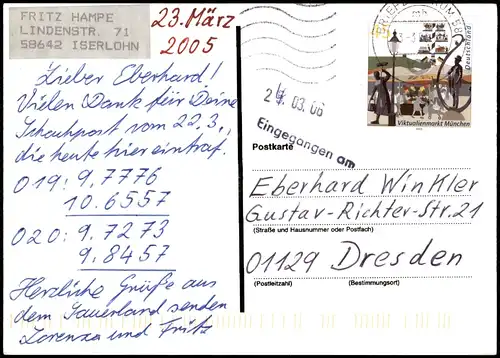 FRITZ HAMPE
LINDENSTR. 71
58642 ISERLOHN
23. März
2005
Lieber Eberhard!
Vielen Dank für Deine
Schachpost vom 22.3.,
die heute hier eintraf.
019: 9.7776
10.6557
020: 9.7273
9.8457
Herzliche Grüße aus
dem Sauerland senden
Lorenza und Fritz
BRIEFZENTRUM 58
Deutschland
Viktualienmarkt München
24. 03. 06
Eingegangen am
Postkarte
Eberhard Winkler
Gustav-Richter-Str. 21
(Straße und Hausnummer oder Postfach)
01129 Dresden
(Postleitzahl) (Bestimmungsort)